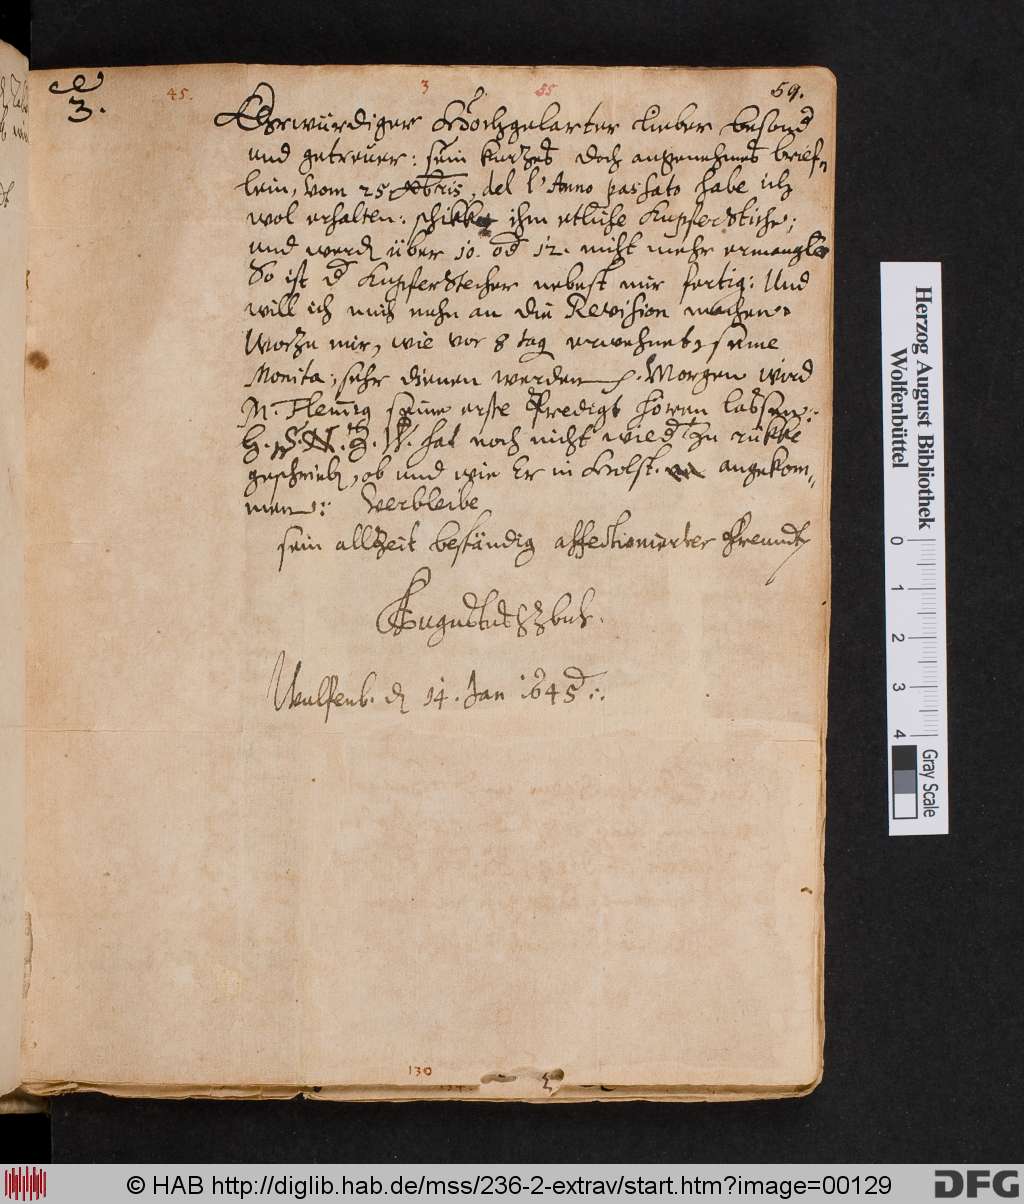 3.
45.
3
55
59.
Ehrwürdiger Hochgelarter lieber besond
und getreuer: sein kurtzes doch angenehmes brief-
lein, vom 25 Xbris, del l'Anno passato habe ich
wol erhalten: schikke ihm etliche KupferStiche;
und werd über 10. od 12. nicht mehr ermangln
So ist d KupferStecher nebest mir fertig: Und
will ich mich nuhn an die Revision machen.
Worzu mir, wie vor 8 tag erwehnet, seine
Monita, sehr dienen werden. Morgen wird
M. Fleming seine erste Predigt hören lassen:
H. hat noch nicht wied zu rükke
geschrieb, ob und wie Er in Holst. angekom-
men: Verbleibe
sein allzeit beständig affectionierter Freundt
Augustus HZBuL.
Wulfenb. d 14. Jan 1645.
130
Herzog August Bibliothek
Wolfenbüttel
0 1 2 3 4
Gray Scale
© HAB http://diglib.hab.de/mss/236-2-extrav/start.htm?image=00129
DFG